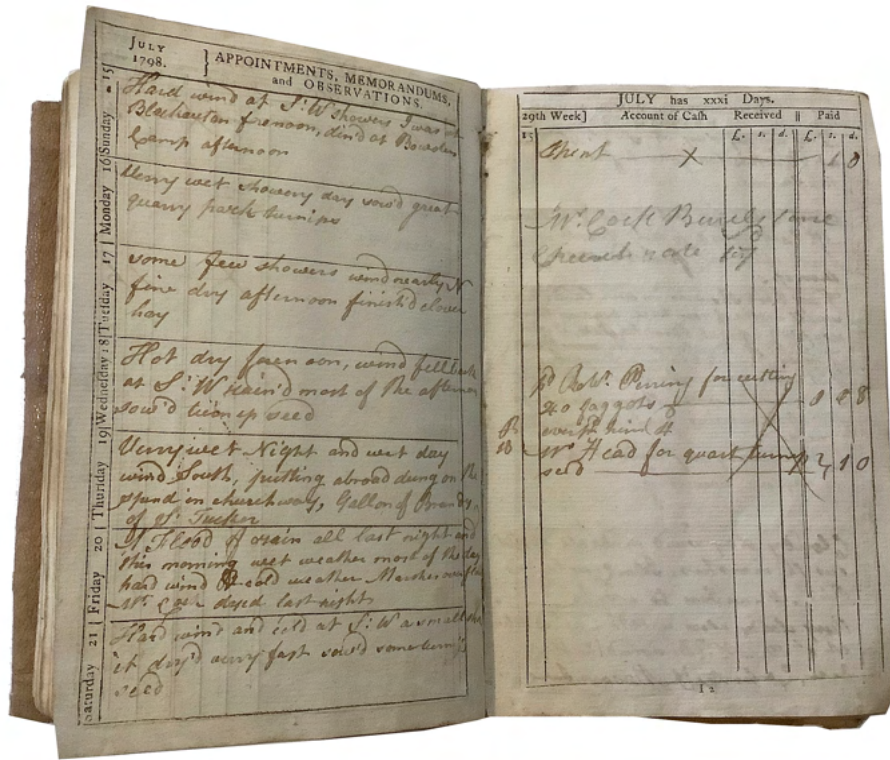 JULY
1798.
APPOINTMENTS, MEMORANDUMS,
and OBSERVATIONS.
15 Sunday
Hard wind at S:W showers I was at
Blackawton forenoon, din'd at Bowden
Camp afternoon
16 Monday
Verry wet showery day sow'd great
quarry park turnips
17 Tuesday
some few showers wind nearly N
fine dry afternoon finish'd clover
hay
18 Wednesday
Hot dry forenoon, wind fell back
at S:W rain'd most of the afternoon
sow'd turnep seed
19 Thursday
Verry wet Night and wet day
wind South, putting abroad dung on the
in churchway, Gallon of Brandy
of Tucker
20 Friday
A Flood of rain all last night and
this morning wet weather most of the day
hard wind cold weather Marshes
Mr. dyed last night
21 Saturday
Hard wind and cold at S:W a small
it dry'd verry fast sow'd some turnip
seed
JULY has xxxi Days.
29th Week] Account of Cash Received || Paid
£. s. d. £. s. d.
15
Spent 1 0
Mr. Cock
note
pd Robt. for cutting
40 faggots
Mr. Head for quart turnip 2 1 0
seed
I 2